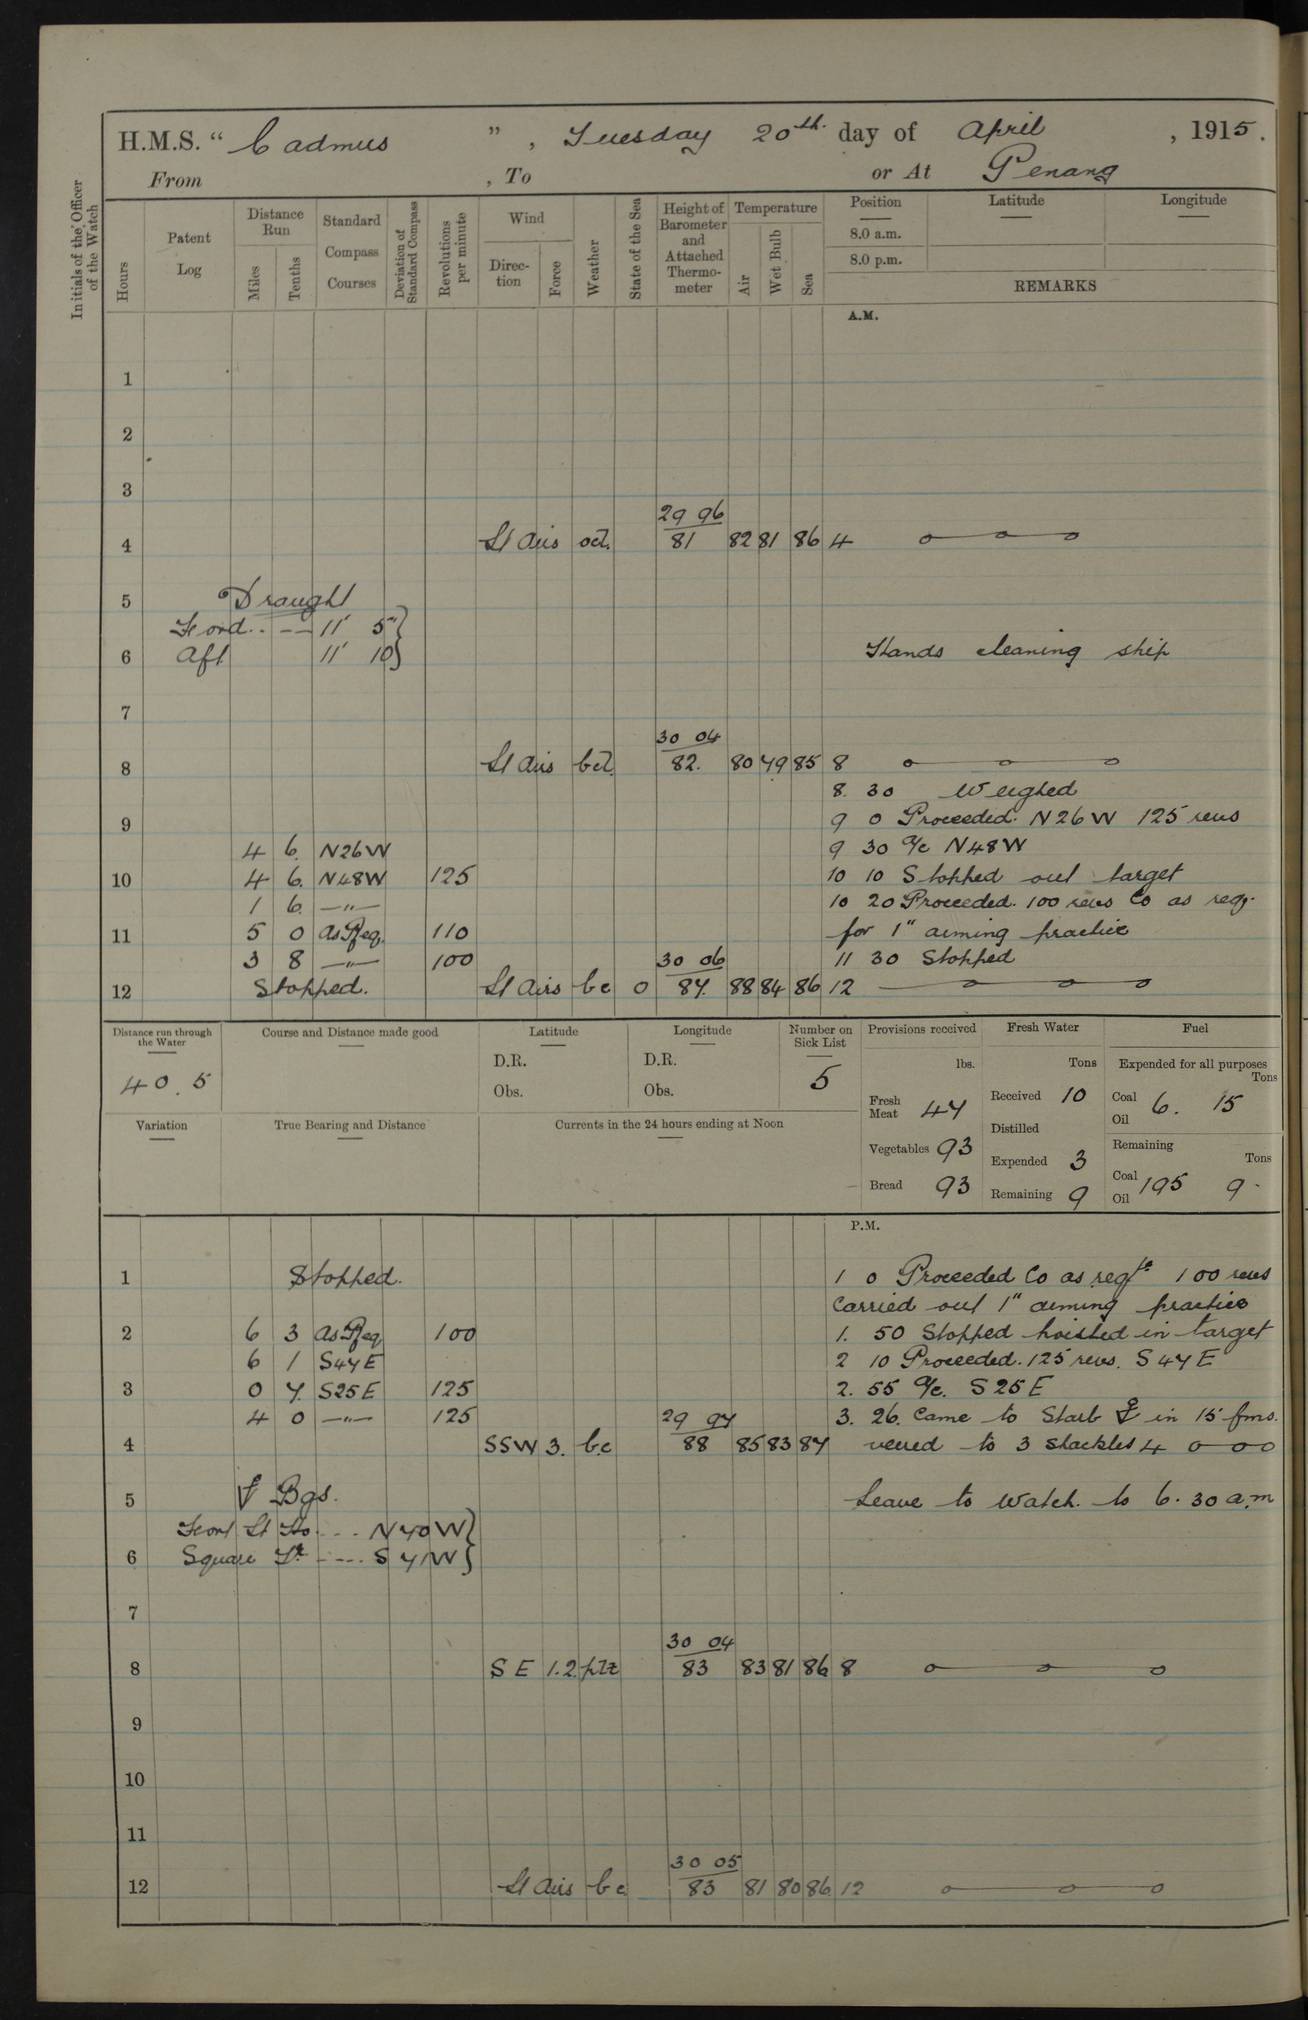 H.M.S. “Cadmus”, Tuesday 20th. day of April, 1915.
From , To or At Penang
Initials of the Officer of the Watch
Hours
Patent Log
Distance Run
Miles
Tenths
Standard Compass Courses
Deviation of Standard Compass
Revolutions per minute
Wind
Direction
Force
Weather
State of the Sea
Height of Barometer and Attached Thermometer
Temperature
Air
Wet Bulb
Sea
Position
8.0 a.m.
8.0 p.m.
Latitude
Longitude
REMARKS
A.M.
1
2
3
29 96
4 Lt airs 81 82 81 86 4
5 Draught
Ford. 11' 5"
6 Aft 11' 10 Hands cleaning ship
7
30 04
8 Lt airs 82. 80 79 85 8
8. 30 Weighed
9 9 0 Proceeded. N26W 125 revs
4 6. N26W 9 30 a/c N48W
10 4 6. N48W 125 10 10 Stopped out target
1 6. —"— 10 20 Proceeded. 100 revs Co as req.
11 5 0 as Req. 110 for 1" aiming practice
3 8 —"— 100 30 06 11 30 Stopped
12 Stopped. Lt airs bc 0 87. 88 84 86 12
Distance run through the Water
40.5
Course and Distance made good
Latitude
D.R.
Obs.
Longitude
D.R.
Obs.
Number on Sick List
5
Provisions received
lbs.
Fresh Meat 47
Vegetables 93
Bread 93
Fresh Water
Tons
Received 10
Distilled
Expended 3
Remaining 9
Fuel
Expended for all purposes
Tons
Coal 6. 15
Oil
Remaining
Tons
Coal 195 9.
Oil
Variation
True Bearing and Distance
Currents in the 24 hours ending at Noon
P.M.
1 Stopped. 1 0 Proceeded Co as reqte 100 revs
Carried out 1" aiming practice
2 6 3 as Req 100 1. 50 Stopped hoisted in target
6 1 S47E 2 10 Proceeded. 125 revs. S47E
3 0 7. S25E 125 2. 55 a/c. S25E
4 0 —"— 125 29 97 3. 26. Came to Starb ⚓ in 15 fms.
4 SSW 3. bc 88 85 83 87 veered to 3 shackles 4
5 ⚓ Bgs. Leave to Watch. to 6.30 a.m
Fort Lt Ho --- N70W
6 Square Tr ---- S71W
7
30 04
8 SE 1.2 83 83 81 86 8
9
10
11
30 05
12 Lt airs bc 83 81 80 86 12